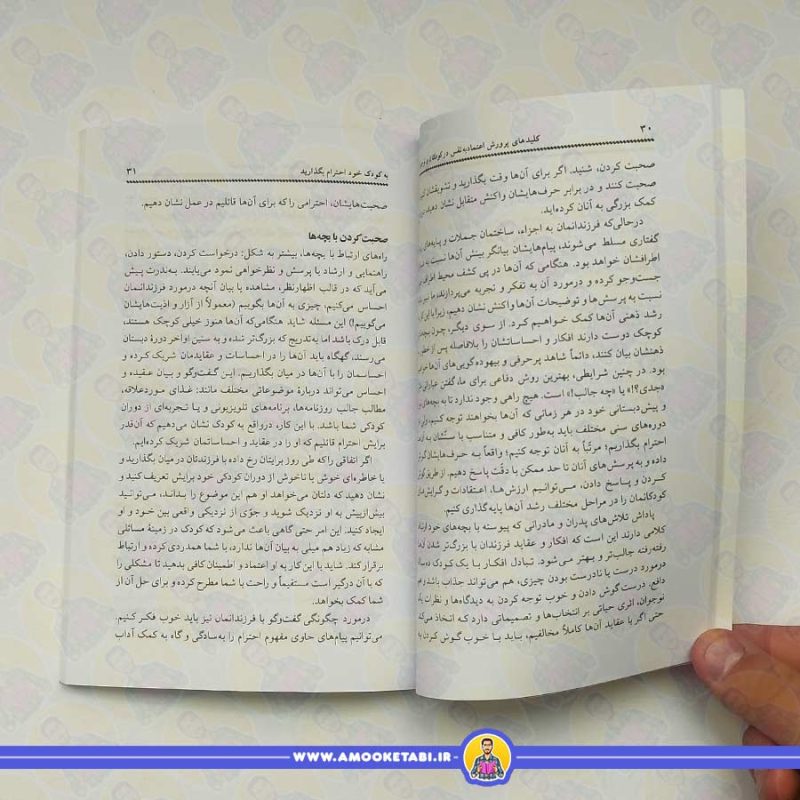 ۳۰
کلیدهای پرورش اعتمادبه نفس در کودکان و
صحبت کردن، شنید. اگر برای آن‌ها وقت بگذارید و تشویقشان کنید
صحبت کنند و در برابر حرف‌هایشان واکنش متقابل نشان دهید،
کمک بزرگی به آنان کرده‌اید.
درحالی‌که فرزندانمان به اجزاء، ساختمان جملات و پایه‌های
گفتاری مسلط می‌شوند، پیام‌هایشان بیانگر بینش آن‌ها نسبت به
اطرافشان خواهد بود. هنگامی که آن‌ها در پی کشف محیط اطراف
جست‌وجو کرده و درمورد آن به تفکر و تجربه می‌پردازند، ما نیز
نسبت به پرسش‌ها و توضیحات آن‌ها واکنش نشان دهیم، زیرا با این کار
رشد ذهنی آن‌ها کمک خواهیم کرد. از سوی دیگر، چون بچه‌های
کوچک دوست دارند افکار و احساساتشان را بلافاصله پس از
ذهنشان بیان کنند، دائماً شاهد پرحرفی و بیهوده‌گویی‌های آن‌ها
بود. در چنین شرایطی، بهترین روش دفاعی برای ما، گفتن عباراتی
«جدی؟!» یا «چه جالب!» است. هیچ راهی وجود ندارد تا به بچه‌های
و پیش‌دبستانی خود در هر زمانی که آن‌ها بخواهند توجه کنیم،
دوره‌های سنی مختلف باید به‌طور کافی و متناسب با سنّشان به آن‌ها
احترام بگذاریم؛ مرتّباً به آنان توجه کنیم؛ واقعاً به حرف‌هایشان گوش
داده و به پرسش‌های آنان تا حد ممکن با دقّت پاسخ دهیم. از طریق گوش
کردن و پاسخ دادن، می‌توانیم ارزش‌ها، اعتقادات و گرایش‌های
کودکانمان را در مراحل مختلف رشد آن‌ها پایه‌گذاری کنیم.
پاداش تلاش‌های پدران و مادرانی که پیوسته با بچه‌های خود
کلامی دارند این است که افکار و عقاید فرزندان با بزرگ‌تر شدن آن‌ها
رفته‌رفته جالب‌تر و بهتر می‌شود. تبادل افکار با یک کودک ده‌ساله
درمورد درست یا نادرست بودن چیزی، هم می‌تواند جذاب باشد و هم
دافع. درست گوش دادن و خوب توجه کردن به دیدگاه‌ها و نظرات یک
نوجوان، اثری حیاتی بر انتخاب‌ها و تصمیماتی دارد که اتخاذ می‌کند
حتی اگر با عقاید آن‌ها کاملاً مخالفیم، باید با خوب گوش کردن به
به کودک خود احترام بگذارید
۳۱
صحبت‌هایشان، احترامی را که برای آن‌ها قائلیم در عمل نشان دهیم.
صحبت‌کردن با بچه‌ها
راه‌های ارتباط با بچه‌ها، بیشتر به شکل: درخواست کردن، دستور دادن،
راهنمایی و ارشاد یا پرسش و نظرخواهی نمود می‌یابند. به‌ندرت پیش
می‌آید که در قالب اظهارنظر، مشاهده یا بیان آنچه درمورد فرزندانمان
احساس می‌کنیم، چیزی به آن‌ها بگوییم (معمولاً از آزار و اذیت‌هایشان
می‌گوییم!) این مسئله شاید هنگامی‌که آن‌ها هنوز خیلی کوچک هستند،
قابل درک باشد اما به‌تدریج که بزرگ‌تر شده و به سنین اواخر دورۀ دبستان
می‌رسند، گهگاه باید آن‌ها را در احساسات و عقایدمان شریک کرده و
احساسمان را با آن‌ها در میان بگذاریم. این گفت‌وگو و بیان عقیده و
احساس می‌تواند دربارۀ موضوعاتی مختلف مانند: غذای موردعلاقه،
مطالب جالب روزنامه‌ها، برنامه‌های تلویزیونی و یا تجربه‌ای از دوران
کودکی شما باشد. با این کار، درواقع به کودک نشان می‌دهیم که آن‌قدر
برایش احترام قائلیم که او را در عقاید و احساساتمان شریک کرده‌ایم.
اگر اتفاقی را که طی روز برایتان رخ داده با فرزندتان در میان بگذارید و
یا خاطره‌ای خوش یا ناخوش از دوران کودکی خود را برایش تعریف کنید و
نشان دهید که دلتان می‌خواهد او هم این موضوع را بداند، می‌توانید
بیش‌ازپیش به او نزدیک شوید و جوّی از نزدیکی واقعی بین خود و او
ایجاد کنید. این امر حتی گاهی باعث می‌شود که کودک در زمینۀ مسائلی
مشابه که زیاد هم میلی به بیان آن‌ها ندارد، با شما همدردی کرده و ارتباط
برقرار کند. شاید با این کار به او اعتماد و اطمینان کافی بدهید تا مشکلی را
که با آن درگیر است مستقیماً و راحت با شما مطرح کرده و برای حل آن از
شما کمک بخواهد.
درمورد چگونگی گفت‌وگو با فرزندانمان نیز باید خوب فکر کنیم.
می‌توانیم پیام‌های حاوی مفهوم احترام را به‌سادگی و گاه به کمک آداب
WWW.AMOOKETABI.IR